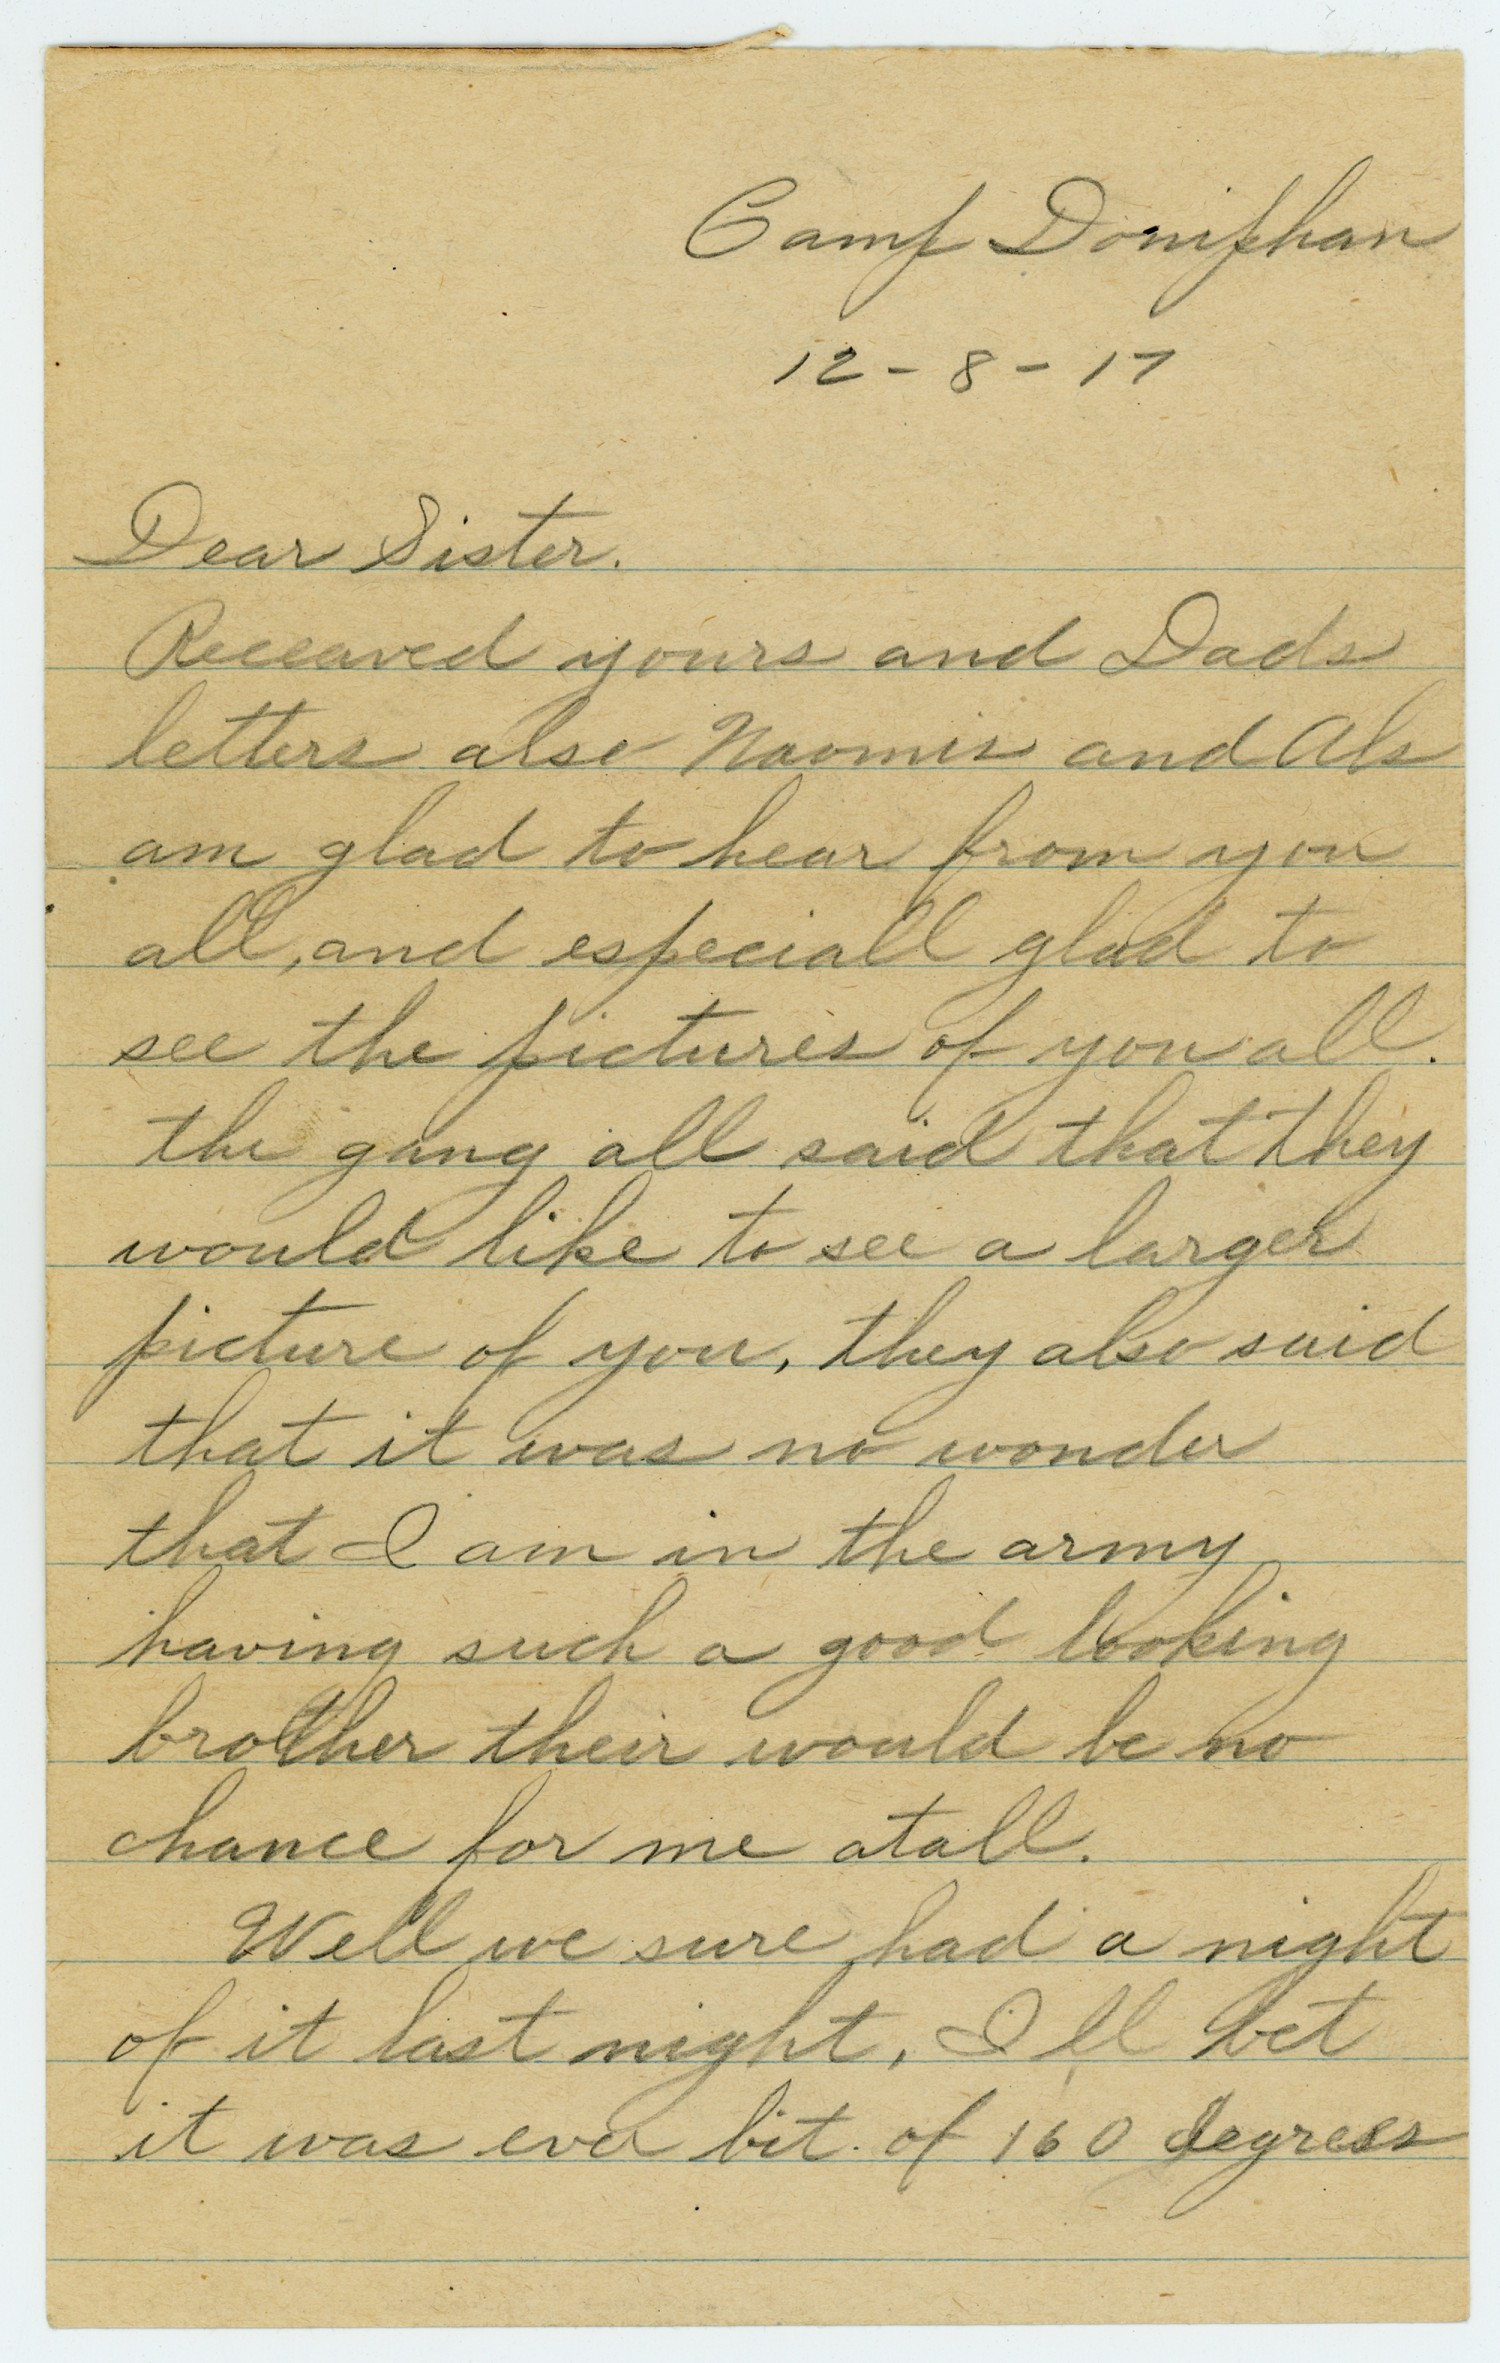 Camp Doniphan
12-8-17
Dear Sister.
Receaved yours and Dads
letters also Naomis and Als
am glad to hear from you
all, and especiall glad to
see the pictures of you all.
the gang all said that they
would like to see a larger
picture of you, they also said
that it was no wonder
that I am in the army
having such a good looking
brother their would be no
chance for me atall.
Well we sure had a night
of it last night, I'll bet
it was ever bit of 160 degrees